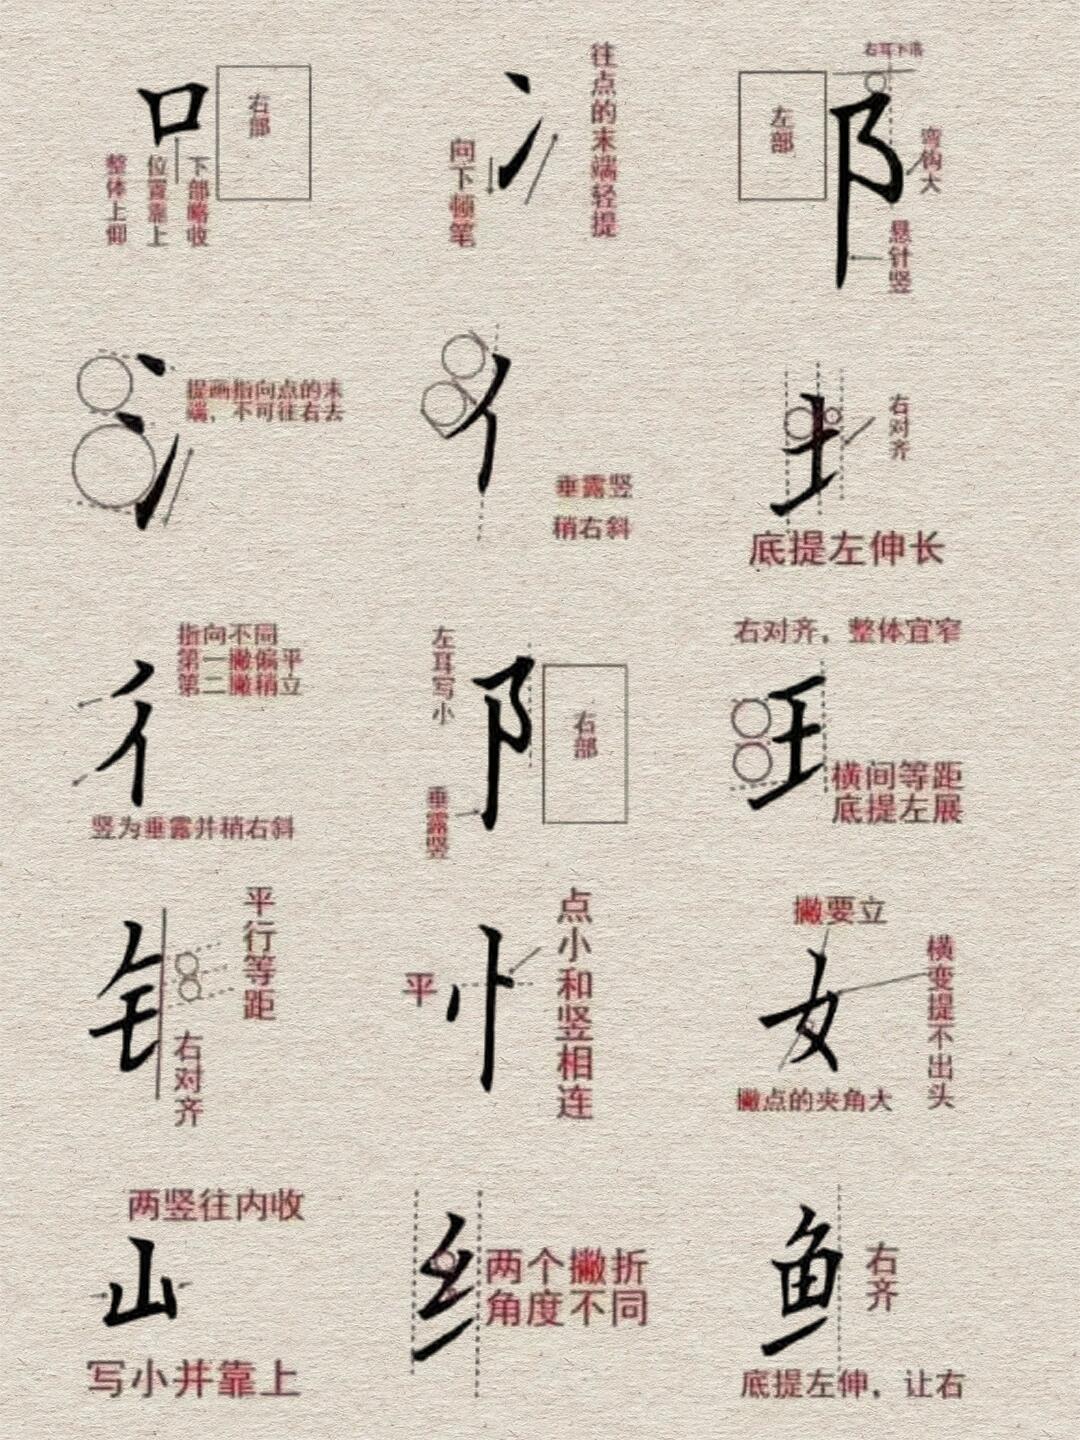 口
右部
下部略收
位置靠上
整体上仰
冫
往点的末端轻提
向下顿笔
右耳下落
左部
阝
弯钩大
悬针竖
氵
提画指向点的末
端，不可往右去
亻
垂露竖
稍右斜
土
右对齐
底提左伸长
彳
指向不同
第一撇偏平
第二撇稍立
竖为垂露并稍右斜
左耳写小
阝
右部
垂露竖
右对齐，整体宜窄
王
横间等距
底提左展
钅
平行等距
右对齐
忄
点小和竖相连
平
撇要立
女
横变提不出头
撇点的夹角大
两竖往内收
山
写小并靠上
纟
两个撇折
角度不同
鱼
右齐
底提左伸，让右